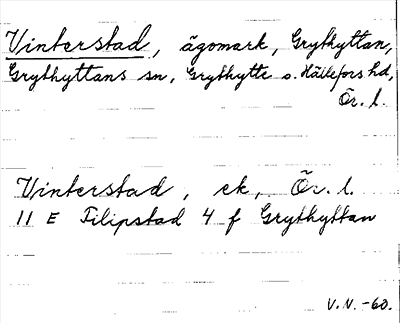 Vinterstad, ägomark, Grythyttan,
Grythyttans sn, Grythytte o. Hällefors hd,
Ör. l.
Vinterstad, ek, Ör. l.
11 E Filipstad 4 f Grythyttan
V.N. -60.